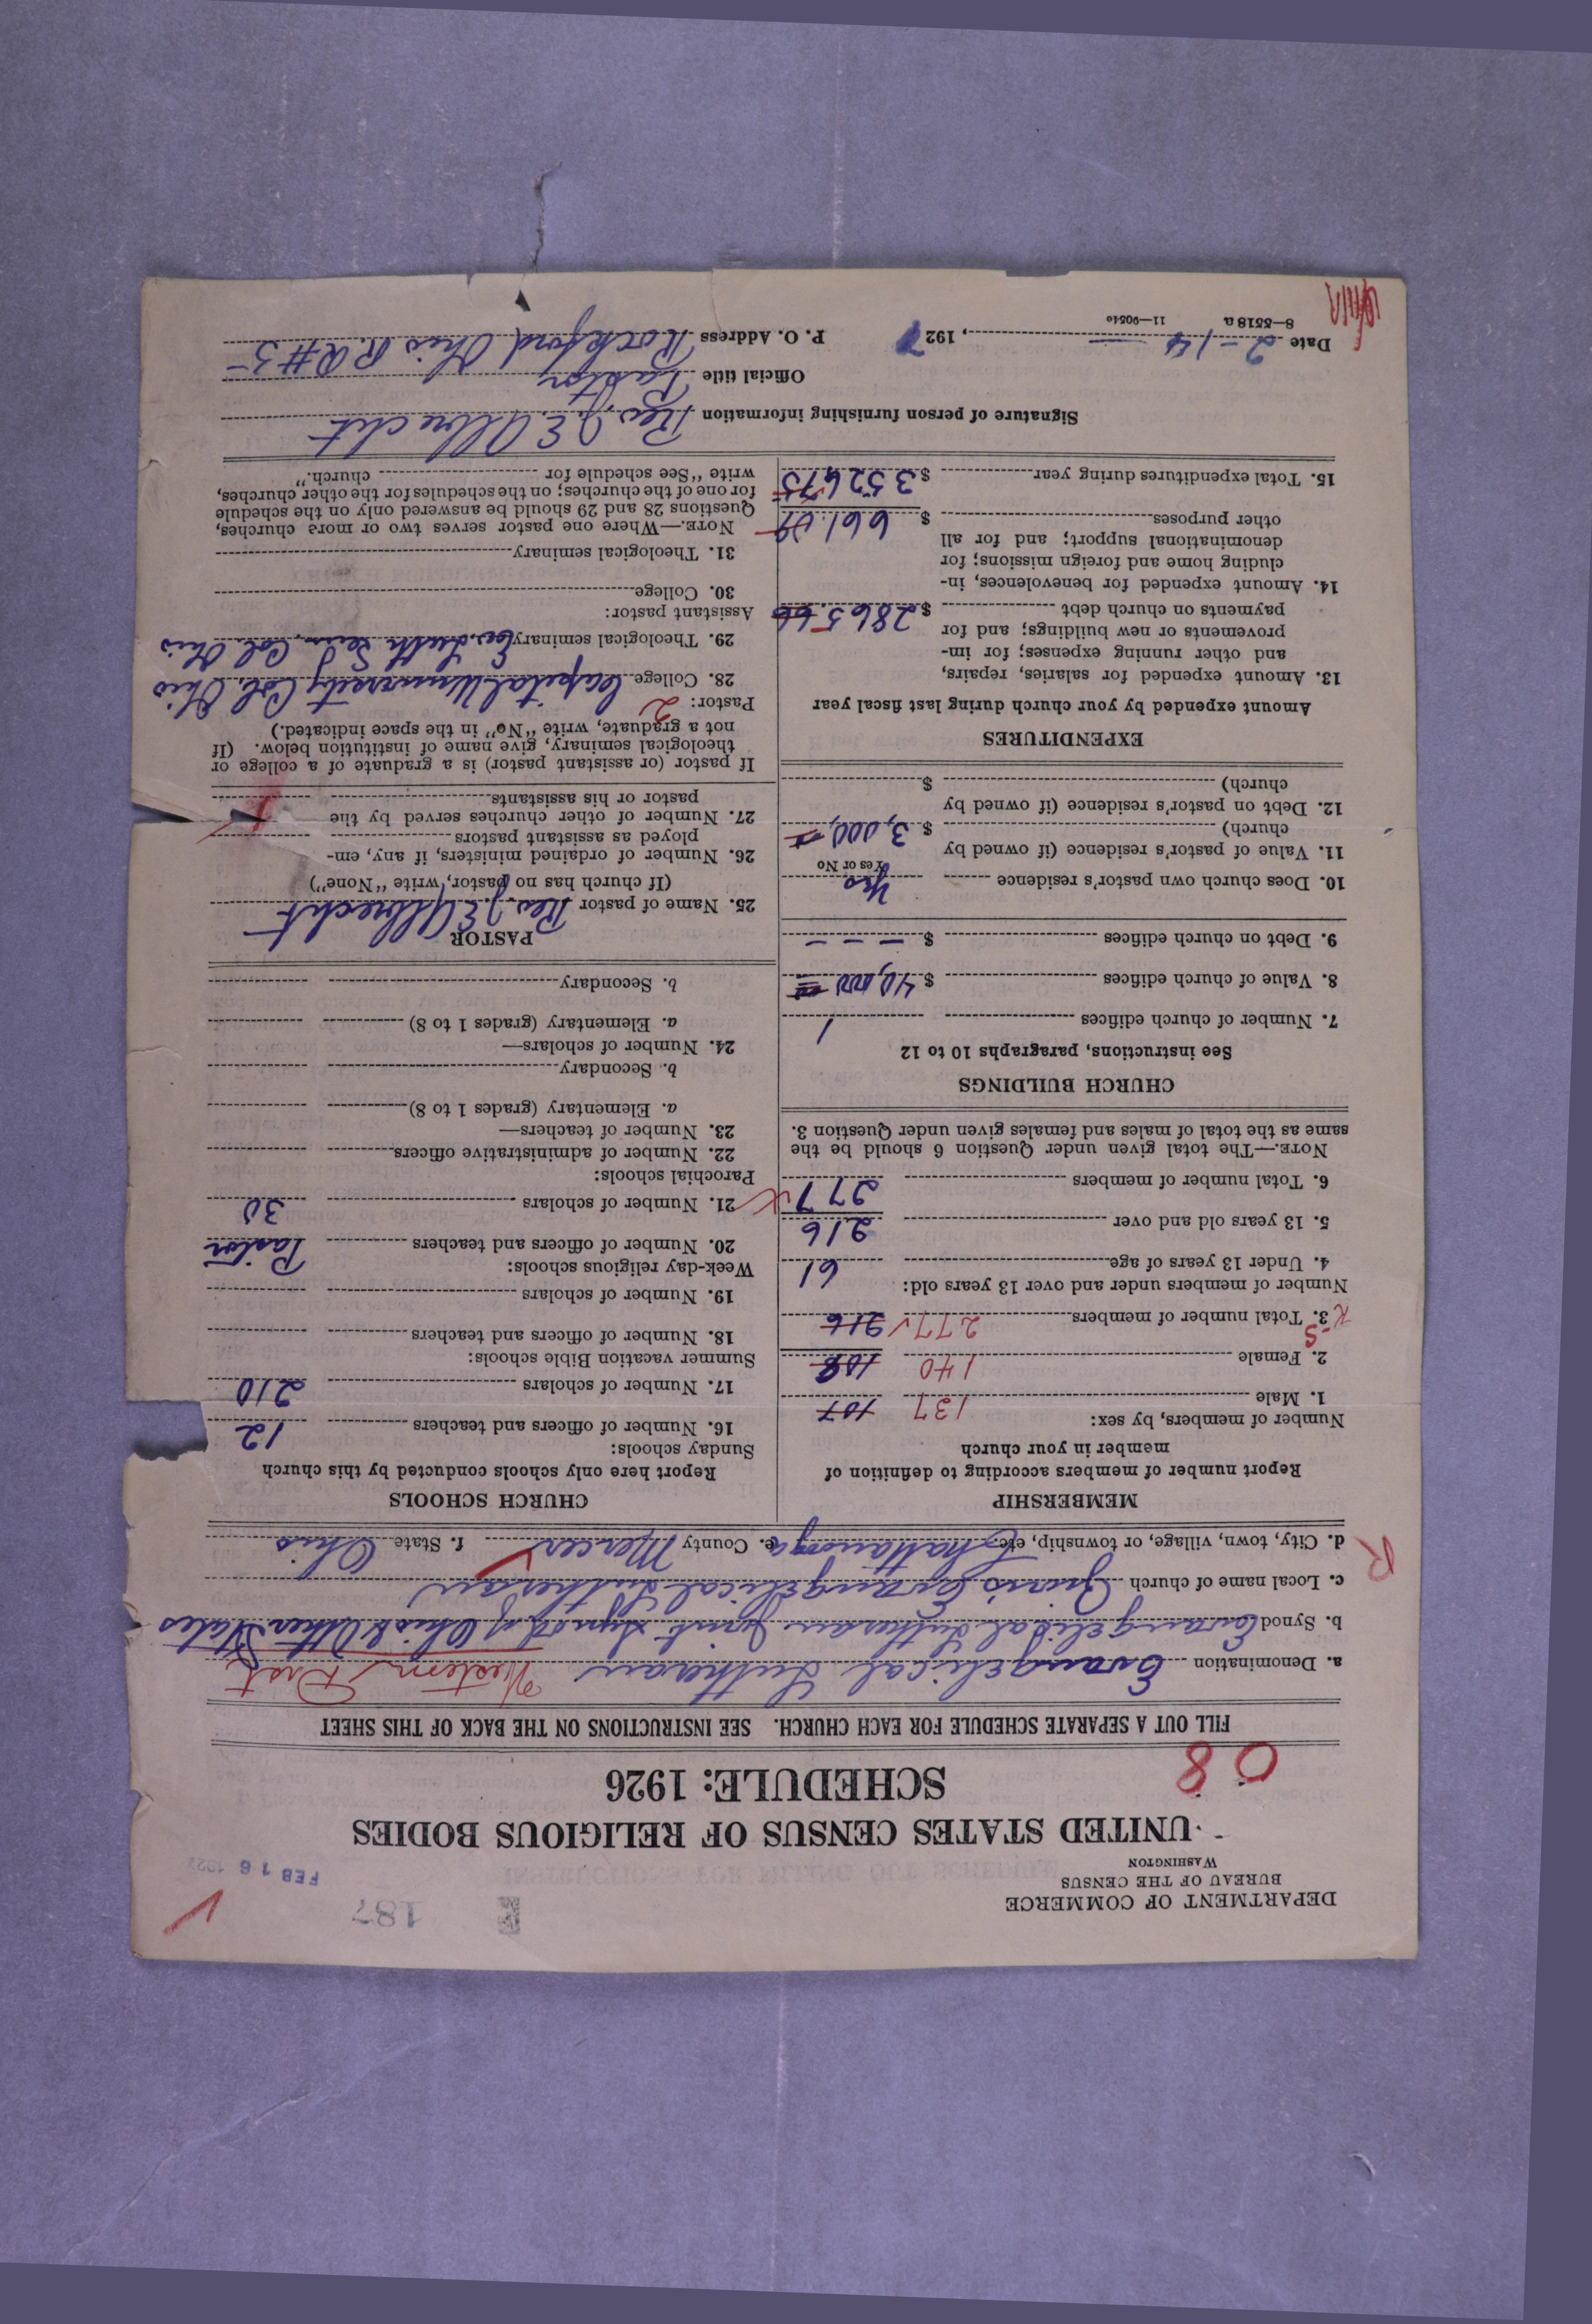 DEPARTMENT OF COMMERCE
BUREAU OF THE CENSUS
WASHINGTON
187
FEB 16 1927
UNITED STATES CENSUS OF RELIGIOUS BODIES
SCHEDULE: 1926
08
FILL OUT A SEPARATE SCHEDULE FOR EACH CHURCH. SEE INSTRUCTIONS ON THE BACK OF THIS SHEET
a. Denomination Evangelical Lutheran Western Dist
b. Synod Evangelical Lutheran Joint Synod of Ohio & Other States
c. Local name of church Zion's Evangelical Lutheran
R
d. City, town, village, or township, etc. Chattanooga e. County Mercer f. State Ohio
MEMBERSHIP
Report number of members according to definition of
member in your church
Number of members, by sex:
1. Male 137 107
2. Female 140 108
3. Total number of members 277 216
Number of members under and over 13 years old:
4. Under 13 years of age 61
5. 13 years old and over 216
6. Total number of members 277
NOTE.—The total given under Question 6 should be the
same as the total of males and females given under Question 3.
CHURCH BUILDINGS
See instructions, paragraphs 10 to 12
7. Number of church edifices 1
8. Value of church edifices $ 40,000
9. Debt on church edifices $ – – –
10. Does church own pastor's residence Yes
Yes or No
11. Value of pastor's residence (if owned by
church) $ 3,000.
12. Debt on pastor's residence (if owned by
church) $
EXPENDITURES
Amount expended by your church during last fiscal year
13. Amount expended for salaries, repairs,
and other running expenses; for im-
provements or new buildings; and for
payments on church debt $ 2865.66
14. Amount expended for benevolences, in-
cluding home and foreign missions; for
denominational support; and for all
other purposes $ 661.09
15. Total expenditures during year $ 3526.75
CHURCH SCHOOLS
Report here only schools conducted by this church
Sunday schools:
16. Number of officers and teachers 12
17. Number of scholars 210
Summer vacation Bible schools:
18. Number of officers and teachers
19. Number of scholars
Week-day religious schools:
20. Number of officers and teachers Pastor
21. Number of scholars 30
Parochial schools:
22. Number of administrative officers
23. Number of teachers—
a. Elementary (grades 1 to 8)
b. Secondary
24. Number of scholars—
a. Elementary (grades 1 to 8)
b. Secondary
PASTOR
25. Name of pastor Rev. J. E. Albrecht
(If church has no pastor, write "None")
26. Number of ordained ministers, if any, em-
ployed as assistant pastors
27. Number of other churches served by the
pastor or his assistants
If pastor (or assistant pastor) is a graduate of a college or
theological seminary, give name of institution below. (If
not a graduate, write "No" in the space indicated.)
Pastor: 2
28. College Capital University Col. Ohio
29. Theological seminary Ev. Luth. Sem. Col. Ohio
Assistant pastor:
30. College
31. Theological seminary
NOTE.—Where one pastor serves two or more churches,
Questions 28 and 29 should be answered only on the schedule
for one of the churches; on the schedules for the other churches,
write "See schedule for church."
Signature of person furnishing information Rev. J. E. Albrecht
Official title Pastor
Date 2-14, 1927 P. O. Address Rockford Ohio R.R #5
8—5518 a 11—9051a